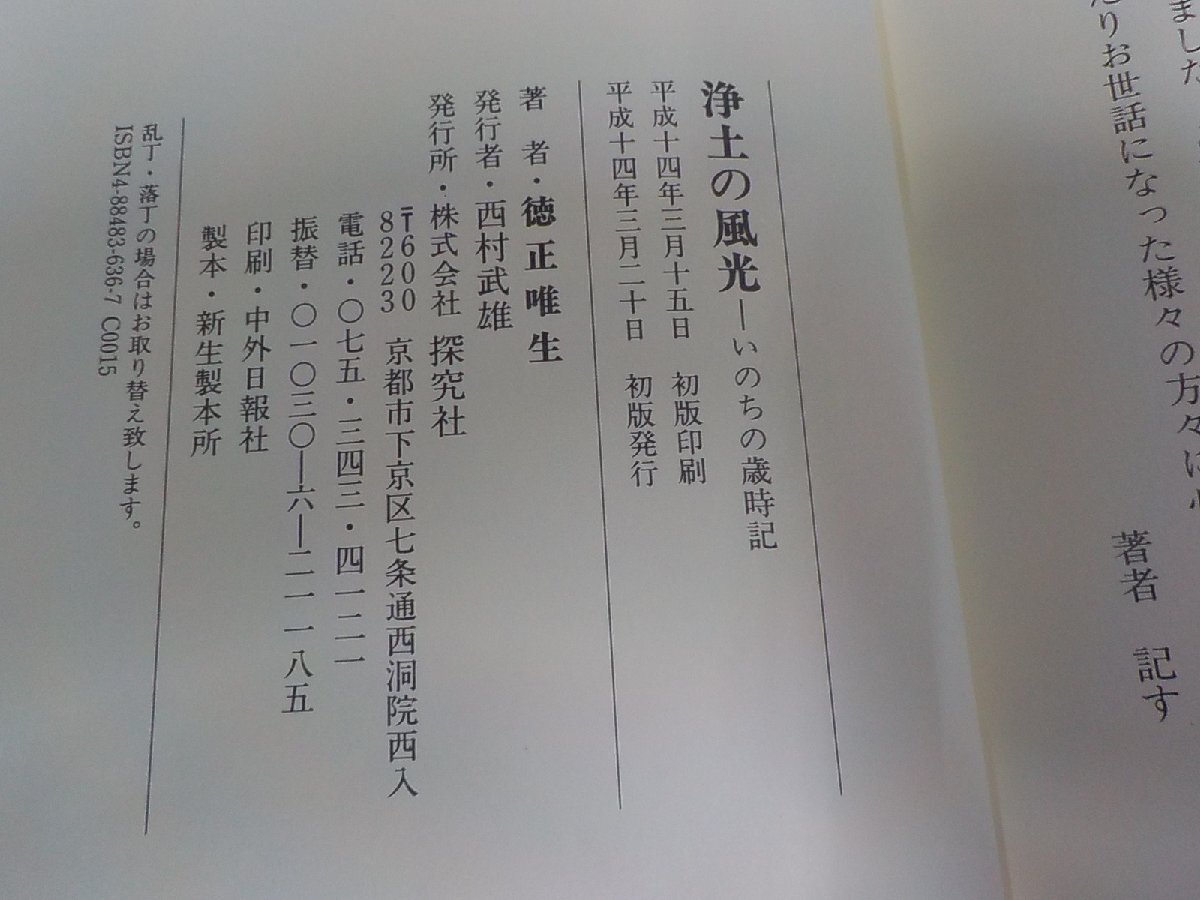 ました
たりお世話になった様々の方々に
著者 記す
浄土の風光―いのちの歳時記
平成十四年三月十五日 初版印刷
平成十四年三月二十日 初版発行
著 者・徳正唯生
発行者・西村武雄
発行所・株式会社 探究社
〒600
8223 京都市下京区七条通西洞院西入
電話・〇七五・三四三・四一二一
振替・〇一〇三〇―六―二一一八五
印刷・中外日報社
製本・新生製本所
乱丁・落丁の場合はお取り替え致します。
ISBN4-88483-636-7 C0015